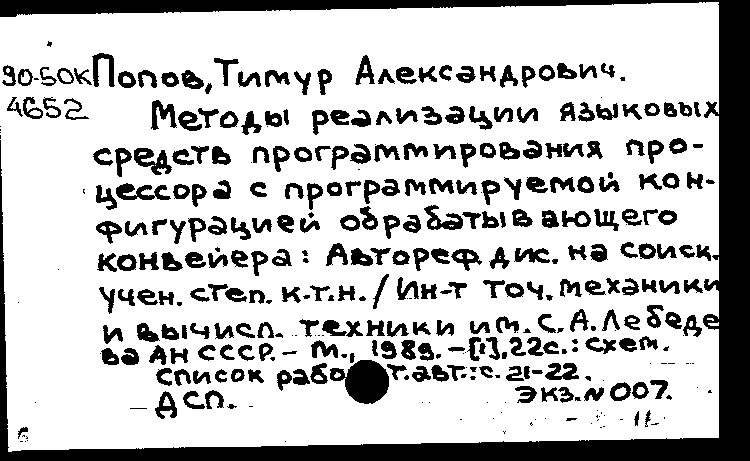 90-50к Попов, Тимур Александрович.
4652 Методы реализации языковых
средств программирования про-
цессора с программируемой кон-
фигурацией обрабатывающего
конвейера: Автореф. дис. на соиск.
учен. степ. к.т.н. / Ин-т точ. механики
и вычисл. техники им. С.А. Лебеде
ва АН СССР. - М., 1989. - [1], 22с.: схем.
Список работ авт.: с. 21-22.
ДСП. Экз. № 007.
б